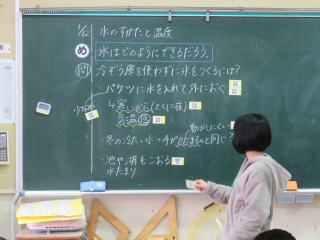 1/12 水のすがたと温度
め 氷はどのようにできるだろう。
問 冷ぞう庫を使わずに氷をつくるには?
・バケツに水を入れて外におく
少なめ
↳寒いから(とくに夜)
気温低
動かしにくい
・冬の冷たい水→手がかたまるのと同じ?
・池や湖もこおる
水たまり